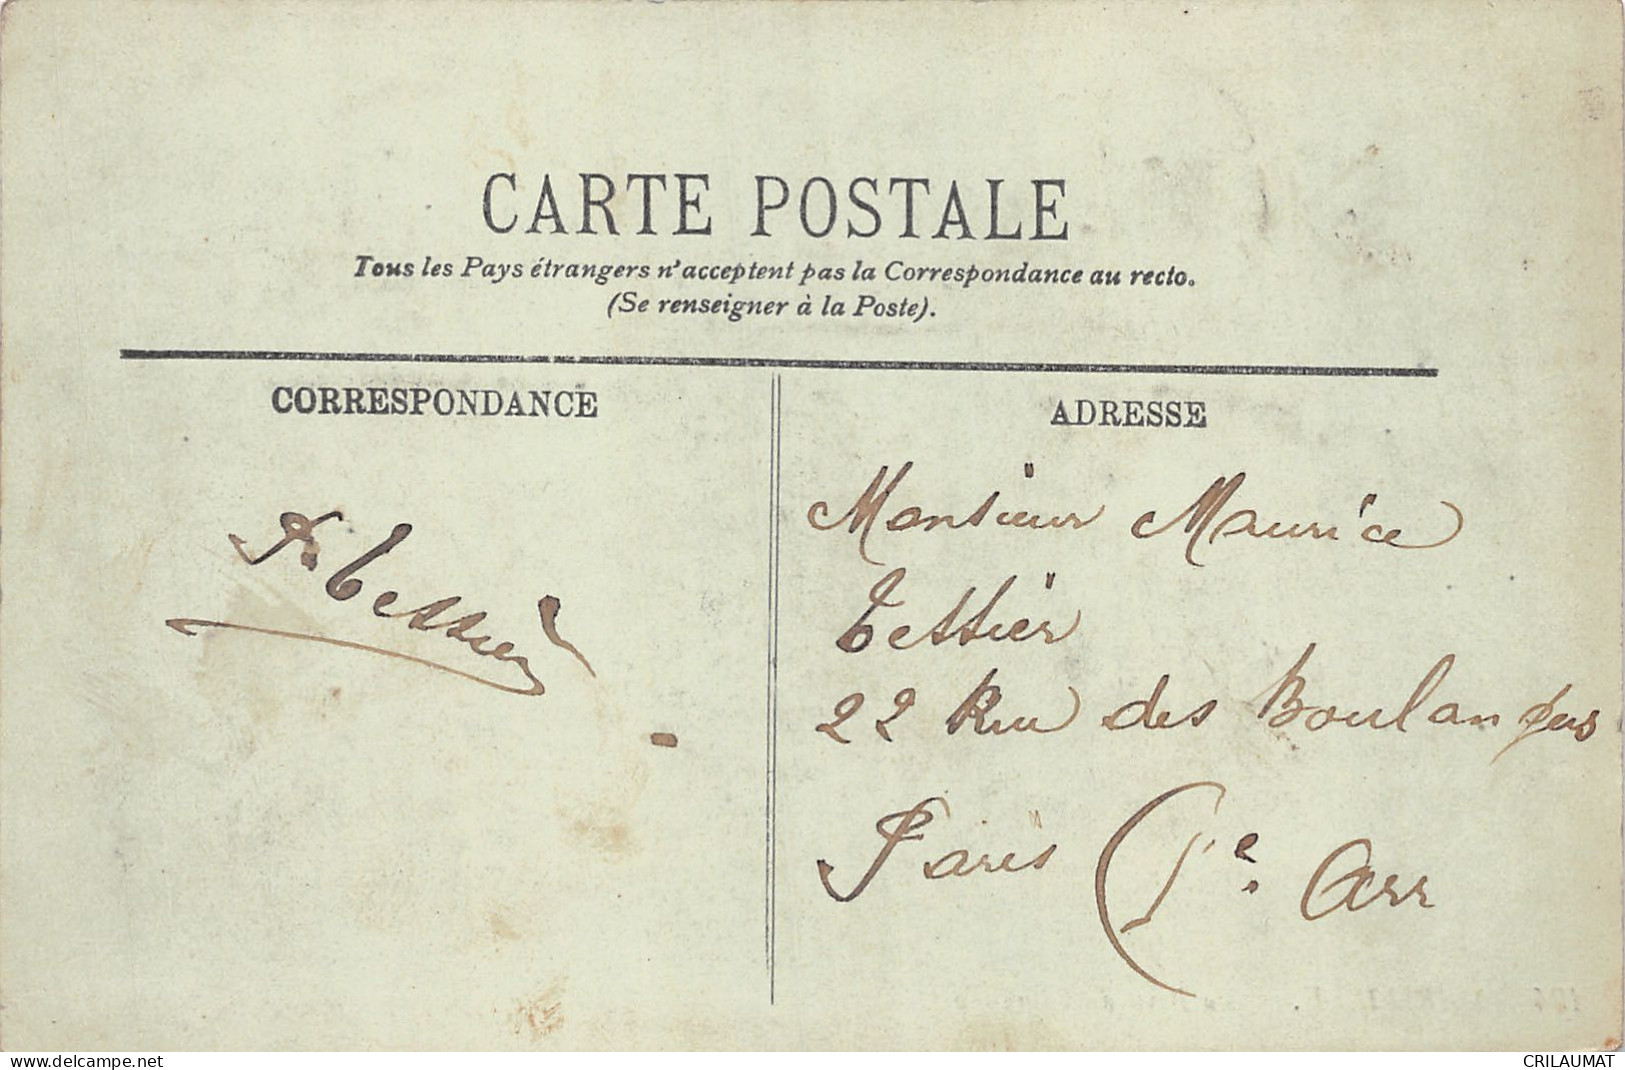 CARTE POSTALE
Tous les Pays étrangers n'acceptent pas la Correspondance au recto.
(Se renseigner à la Poste).
CORRESPONDANCE
ADRESSE
Tessier
Monsieur Maurice
Tessier
22 Rue des Boulangers
Paris (5e Arr
www.delcampe.net
CRILAUMAT